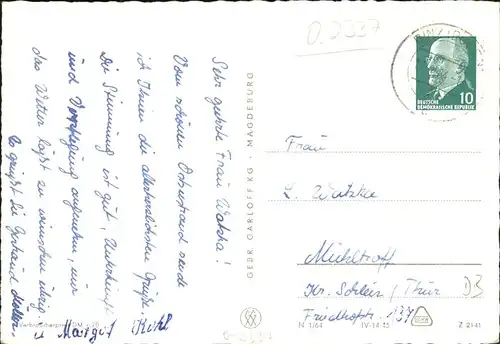 Sehr geehrte Frau Watzka!
Vom schönen Ostseestrand sende
ich Ihnen die allerherzlichsten Grüße.
Die Stimmung ist gut, Unterkunft
und Verpflegung angenehm, nur
das Wetter läßt zu wünschen übrig.
Es grüßt Sie Gertraud
u. Margot Kühl
GEBR. GARLOFF KG · MAGDEBURG
O. 2337
10
DEUTSCHE
DEMOKRATISCHE REPUBLIK
Frau
L. Watzka
Mühltroff
Kr. Schleiz / Thür
Friedhofstr. 137
N 1/64
IV-14-45
Z 2141